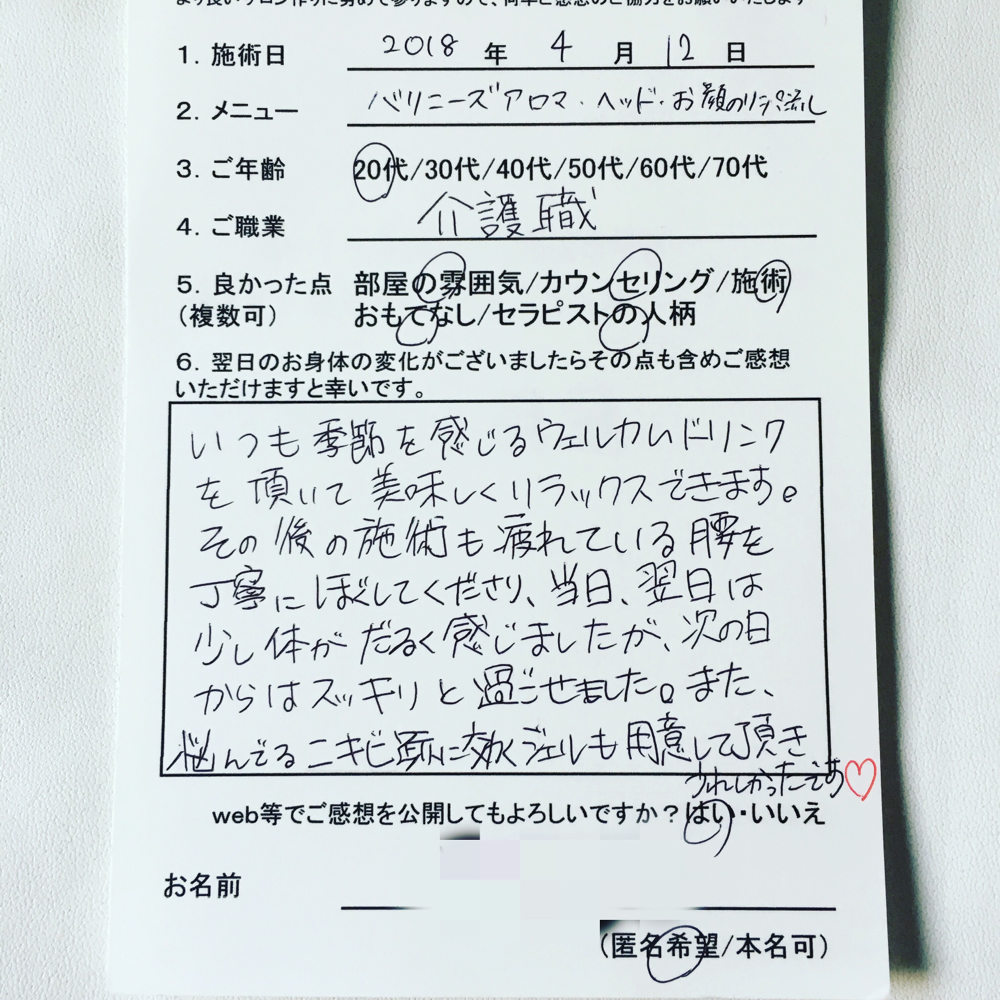 より良いサロン作りに努めて参りますので、何卒ご感想のご協力をお願いいたします
1. 施術日 2018 年 4 月 12 日
2. メニュー バリニーズアロマ・ヘッド・お顔のリンパ流し
3. ご年齢 20代/30代/40代/50代/60代/70代
4. ご職業 介護職
5. 良かった点 部屋の雰囲気/カウンセリング/施術
(複数可) おもてなし/セラピストの人柄
6. 翌日のお身体の変化がございましたらその点も含めご感想
いただけますと幸いです。
いつも季節を感じるウェルカムドリンク
を頂いて美味しくリラックスできます。
その後の施術も疲れている腰を
丁寧にほぐしてくださり、当日、翌日は
少し体がだるく感じましたが、次の日
からはスッキリと過ごせました。また、
悩んでるニキビ跡に効くジェルも用意して頂き
うれしかったです♡
web等でご感想を公開してもよろしいですか?はい・いいえ
お名前
(匿名希望/本名可)